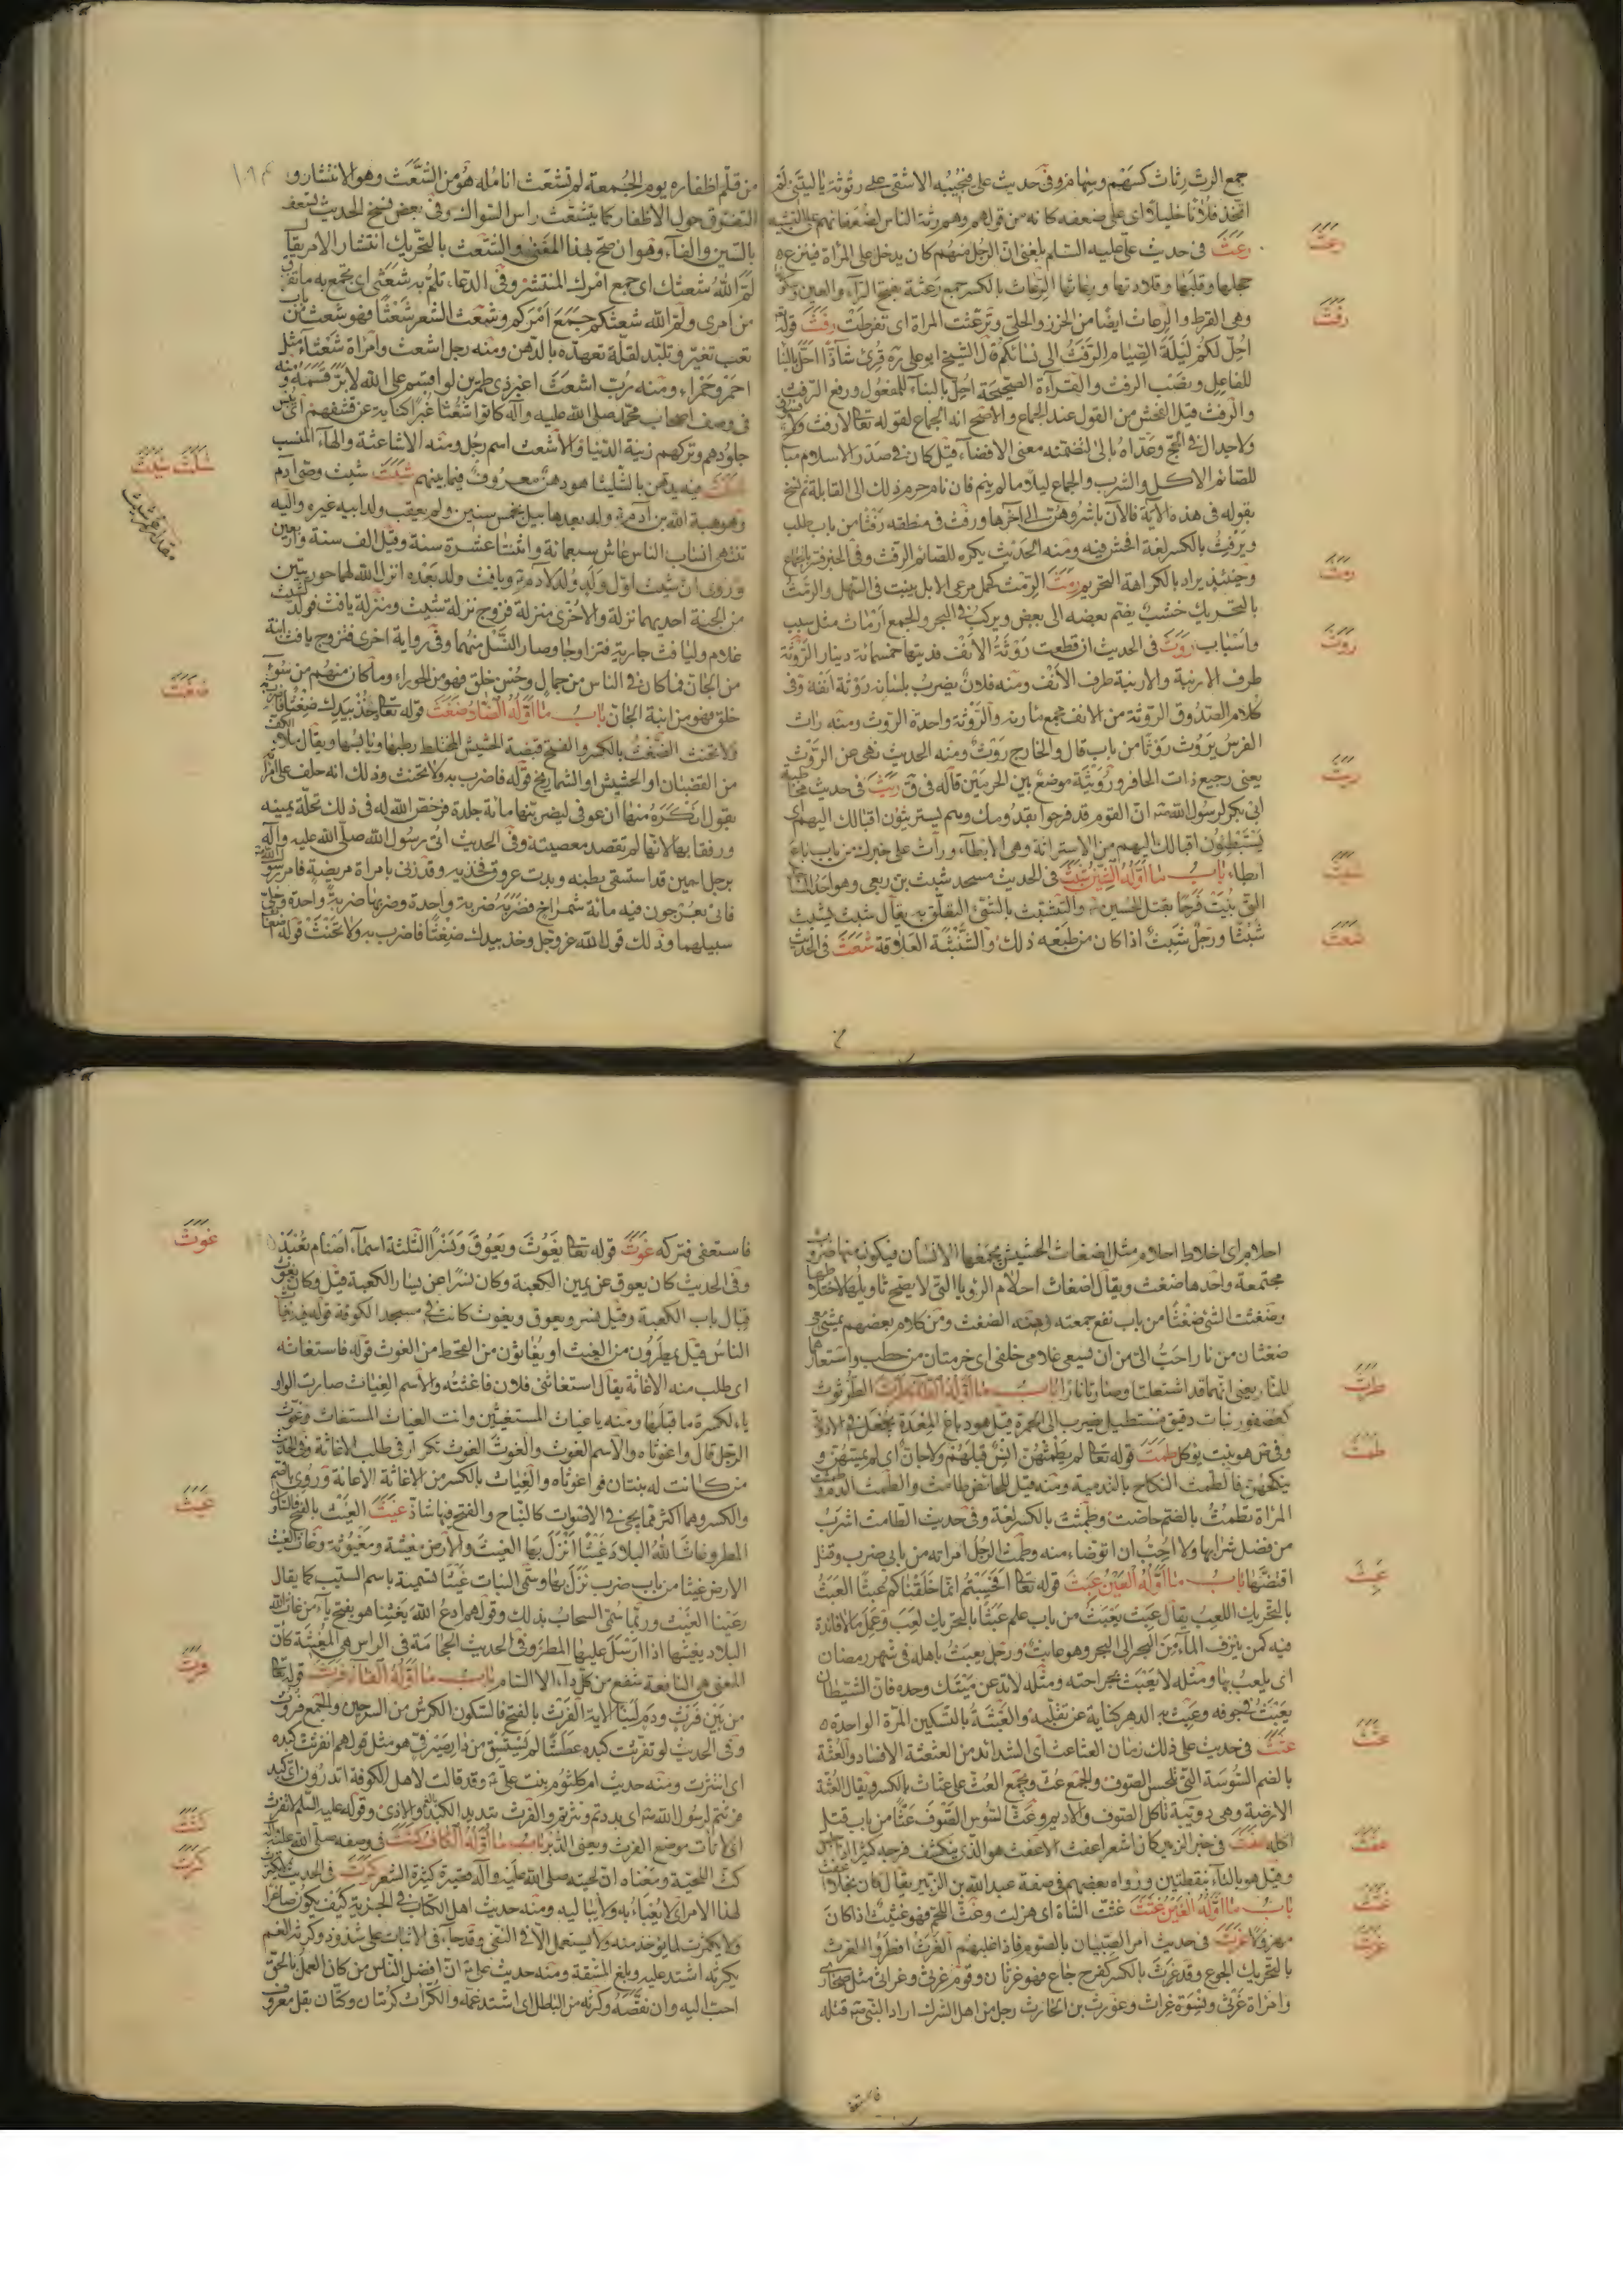 جمع الرث رثاث كسهم وسهام وفى حديث على فيجيبه الاشقى على رثوثة يا ليتنى لم
اتخذ فلانا خليلا اى على ضعفه كانه من قولهم وهم رثة الناس لضعفائهم على التشبيه
رعث فى حديث على عليه السلم بلغنى ان الرجل منهم كان يدخل على المراة فينزع
حجلها وقلبها وقلادتها ورعاثها الرعاث بالكسر جمع رعثة بفتح الراء والعين
وهى القرط والرعاث ايضا من الخرز والحلى وترعثت المراة اى تقرطت رفث قوله
احل لكم ليلة الصيام الرفث الى نسائكم قال الشيخ ابو على ره قرئ شاذا احل بالبناء
للفاعل ونصب الرفث والقرآءة الصحيحة احل بالبنآء للمفعول ورفع الرفث
والرفث قيل الفحش من القول عند الجماع والاصح انه الجماع لقوله تعالى فلا رفث ولا
ولا جدال فى الحج وعداه بالى لتضمنه معنى الافضاء قيل كان فى صدر الاسلام
للصائم الاكل والشرب والجماع ليلا ما لم ينم فان نام حرم ذلك الى القابلة ثم نسخ
بقوله فى هذه الاية فالآن باشروهن الى آخرها ورفث فى منطقه رفثا من باب طلب
ويرفث بالكسر لغة افحش فيه ومنه الحديث يكره للصائم الرفث وفى الخبر فسر بالجماع
وحينئذ يراد بالكراهة التحريم رمث الرمث كحمل مرعى الابل ينبت فى السهل والرمث
بالتحريك خشب يضم بعضه الى بعض ويركب فى البحر والجمع ارماث مثل سبب
واسباب روث فى الحديث ان قطعت روثة الانف فديتها خمسمائة دينار الروثة
طرف الارنبة والارنبة طرف الانف ومنه فلان يضرب بلسانه روثة انفه وفى
كلام الصدوق الروثة من الانف مجمع مارنه والروثة واحدة الروث ومنه راث
الفرس يروث روثا من باب قال والخارج روث ومنه الحديث نهى عن الروث
يعنى رجيع ذات الحافر ورويثة موضع بين الحرمين قاله فى ق ريث فى حديث
ابى بكر لرسول الله ان القوم قد فرحوا بقدومك وهم يستريثون اقبالك اليهم اى
يستبطؤن اقبالك اليهم من الاستراثة وهى الابطآء وراث على خبرك من باب باع
ابطاء باب ما اوله الشين شبث فى الحديث مسجد شبث بن ربعى وهو احد المساجد
التى بنيت فرحا بقتل الحسين والتشبث بالشئ التعلق به يقال شبث يشبث
شبثا ورجل شبث اذا كان من طبعه ذلك والشبثة العلاقة شعث فى الحديث
رعث
رفث
رمث
روث
ريث
شبث
شعث
من قلم اظفاره يوم الجمعة لم تشعث انامله هو من الشعث وهو الانتشار و
التفرق حول الاظفار كما يتشعث راس السواك وفى بعض نسخ الحديث تسعف
بالسين والفآء وهو ان صح بهذا المعنى والشعث بالتحريك انتشار الامر يقال
لم الله شعثك اى جمع امرك المنتشر وفى الدعاء تلم به شعثى اى تجمع به ما تفرق
من امرى ولم الله شعثكم جمع امركم وشعث الشعر شعثا فهو شعث من باب
تعب تغير وتلبد لقلة تعهده بالدهن ومنه رجل اشعث وامراة شعثاء مثل
احمر وحمراء ومنه رب اشعث اغبر ذى طمرين لو اقسم على الله لابر قسمه ومنه
فى وصف اصحاب محمد صلى الله عليه وآله كانوا شعثا غبرا كناية عن قشفهم اى يبس
جلودهم وتركهم زينة الدنيا والاشعث اسم رجل ومنه الاشاعثة والهآء للنسب
شلث فيه يدهن بالشليثا هو دهن معروف فيما بينهم شيث شيث وصى آدم
وهو هبة الله بن آدم ولد بعد هابيل بخمس سنين ولم يعقب ولد ابيه غيره واليه
تنتهى انساب الناس عاش سبعمائة واثنتا عشرة سنة وقيل الف سنة واربعين
وروى ان شيث اول ولد ولد لادم ويافث ولد بعده انزل الله لهما حوريتين
من الجنة احديهما نزلة والاخرى منزلة فزوج نزلة شيث ومنزلة يافث فولد لشيث
غلام وليافث جارية فتزاوجا وصار النسل منهما وفى رواية اخرى فتزوج يافث ابنة
من الجان فما كان فى الناس من جمال وحسن خلق فهو من الحوراء وما كان منهم من سوء
خلق فهو من ابنة الجان باب ما اوله الضاد ضغث قوله تعالى خذ بيدك ضغثا فاضرب به
ولا تحنث الضغث بالكسر والفتح قبضة الحشيش المختلط رطبها ويابسها ويقال ملأ الكف
من القضبان او الحشيش او الشماريخ قوله فاضرب به ولا تحنث وذلك انه حلف على امر
بقول انكره منها ان عوفى ليضربنها مائة جلدة فرخص الله له فى ذلك تحلة يمينه
ورفقا بها لانها لم تقصد معصيته وفى الحديث اتى رسول الله صلى الله عليه وآله
برجل احبن قد استسقى بطنه وبدت عروق فخذيه وقد زنى بامراة مريضة فامر
فاتى بعرجون فيه مائة شمراخ فضربه ضربة واحدة وضربها ضربة واحدة وخلى
سبيلهما وذلك قول الله عز وجل وخذ بيدك ضغثا فاضرب به ولا تحنث قوله
شلث شيث
ضغث
احلام اى اخلاط احلام مثل اضغاث الحشيش يجمعها الانسان فيكون منها ضروب
مجتمعة واحدها ضغث ويقال اضغاث احلام الرؤيا التى لا يصح تاويلها لاختلاطها
وضغثت الشئ ضغثا من باب نفع جمعته ومنه الضغث ومن كلام بعضهم يمشى معى
ضغثان من نار احب الى من ان يسعى غلامى خلفى اى حزمتان من حطب واستعار
للنار يعنى انهما قد اشتعلتا وصارتا نارا باب ما اوله الطآء طرث الطرثوث
كعصفور نبات دقيق مستطيل يضرب الى الحمرة قيل هو دباغ المعدة يجعل فى الادوية
وفى ص هو نبت يوكل طمث قوله تعالى لم يطمثهن انس قبلهم ولا جان اى لم يمسهن و
ينكحهن فالطمث النكاح بالتدمية ومنه قيل للحائض طامث والطمث الدم وطمثت
المراة تطمث بالضم حاضت وطمثت بالكسر لغة وفى حديث الطامث اشرب
من فضل شرابها ولا احب ان اتوضاء منه وطمث الرجل امراته من بابى ضرب وقتل
اقتضها باب ما اوله العين عبث قوله تعالى افحسبتم انما خلقناكم عبثا العبث
بالتحريك اللعب يقال عبث يعبث من باب علم عبثا بالتحريك لعب وعمل ما لا فائدة
فيه كمن ينزف المآء من البحر الى البحر وهو عابث ورجل يعبث باهله فى شهر رمضان
اى يلعب بها ومثله لا يعبث بجراحته ومثله لا تدعن ميتك وحده فان الشيطان
يعبث فى جوفه وعبث به الدهر كناية عن تقلبه والعبثة بالتسكين المرة الواحدة
عثث فى حديث على ذلك زمان العثاعث اى الشدائد من العثعثة الافساد والعثة
بالضم السوسة التى تلحس الصوف والجمع عث ويجمع العث على عثاث بالكسر ويقال العثة
الارضة وهى دويبة تاكل الصوف والاديم وعث السوس الصوف عثا من باب قتل
اكله عفث فى خبر الزبير كان اشعر اعفث الاعفث هو الذى ينكشف فرجه كثيرا اذا جلس
وقيل هو بالتآء بنقطتين ورواه بعضهم فى صفة عبد الله بن الزبير يقال كان بخيلا اعفث
باب ما اوله الغين غثث غثت الشاة اى هزلت وغث اللحم فهو غثيث اذا كان
مهزولا غرث فى حديث امر الصبيان بالصوم فاذا غلبهم الغرث افطروا الغرث
بالتحريك الجوع وقد غرث بالكسر كفرح جاع فهو غرثان وقوم غرثى وغراثى مثل صحارى
وامراة غرثى ونسوة غراث وغورث بن الحارث رجل من اهل الشرك اراد النبى قتله
فاستعفى
طرث
طمث
عبث
عثث
عفث
غثث
غرث
فاستعفى فتركه غوث قوله تعالى يغوث ويعوق ونسرا الثلثة اسماء اصنام تعبد
وفى الحديث كان يعوق عن يمين الكعبة وكان نسرا عن يسار الكعبة قيل وكان يغوث
قبال باب الكعبة وقيل نسر ويعوق ويغوث كانت فى مسجد الكوفة قوله فيه يغاث
الناس قيل يمطرون من الغيث او يغاثون من القحط من الغوث قوله فاستغاثه
اى طلب منه الاغاثة يقال استغاثنى فلان فاغثته والاسم الغياث صارت الواو
ياء لكسرة ما قبلها ومنه يا غياث المستغيثين وانت الغياث المستغاث وغوث
الرجل قال واغوثاه والاسم الغوث والغوث الغوث تكرار فى طلب الاغاثة وفى الحديث
من كانت له بنتان فواغوثاه والغياث بالكسر من الاغاثة الاعانة وروى بالضم
والكسر وهما اكثر مما يجئ فى الاصوات كالنباح والفتح فيها شاذ غيث الغيث بالفتح فالسكون
المطر وغاث الله البلاد غيثا انزل بها الغيث والارض مغيثة ومغيوثة وغاث الغيث
الارض غيثا من باب ضرب نزل بها وسمى النبات غيثا تسمية باسم السبب كما يقال
رعينا الغيث وربما سمى السحاب بذلك وقولهم ادع الله يغيثنا هو بفتح يآء من غاث الله
البلاد يغيثها اذا ارسل عليها المطر وفى الحديث الحجامة فى الراس هى المغيثة كان
المعنى هى النافعة تنفع من كل دآء الا السام باب ما اوله الفآء فرث قوله تعالى
من بين فرث ودم لبنا الاية الفرث بالفتح فالسكون الكرش من السرجين والجمع فروث
وفى الحديث لو تفرثت كبده عطشا لم يستسق من دار صيرفى هو مثل قولهم انفرثت كبده
اى انتثرت ومنه حديث ام كلثوم بنت على وقد قالت لاهل الكوفة اتدرون اى كبد
فرثتم لرسول الله اى بددتم ونثرتم والفرث تبديد الكبد والاذى وقوله عليه السلم
كث اللحية ومعناه ان لحيته صلى الله عليه وآله قصيرة كثيرة الشعر كرث فى الحديث لا يكترث
لهذا الامر اى لا يعباء به ولا يباليه ومنه حديث اهل الكتاب فى الجزية كيف يكون صاغرا
ولا يكترث لما يوخذ منه ولا يستعمل الا فى النفى وقد جاء فى الاثبات على شذوذ وكرثه الغم
يكرثه اشتد عليه وبلغ المشقة ومنه حديث على ان افضل الناس من كان العمل بالحق
احب اليه وان نقصه وكرثه من الباطل اى اشتد غمه والكراث كرمان وكتان بقل معروف
غوث
غيث
فرث
كثث
كرث